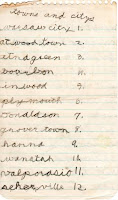 towns and citys
warsaw city 1.
atwood town 2.
etna green 3.
bourbon 4.
inwood 5.
plymouth 6.
donaldson 7.
grover town 8.
hanna 9.
wanatah 10.
valporasio 11.
scherville 12.